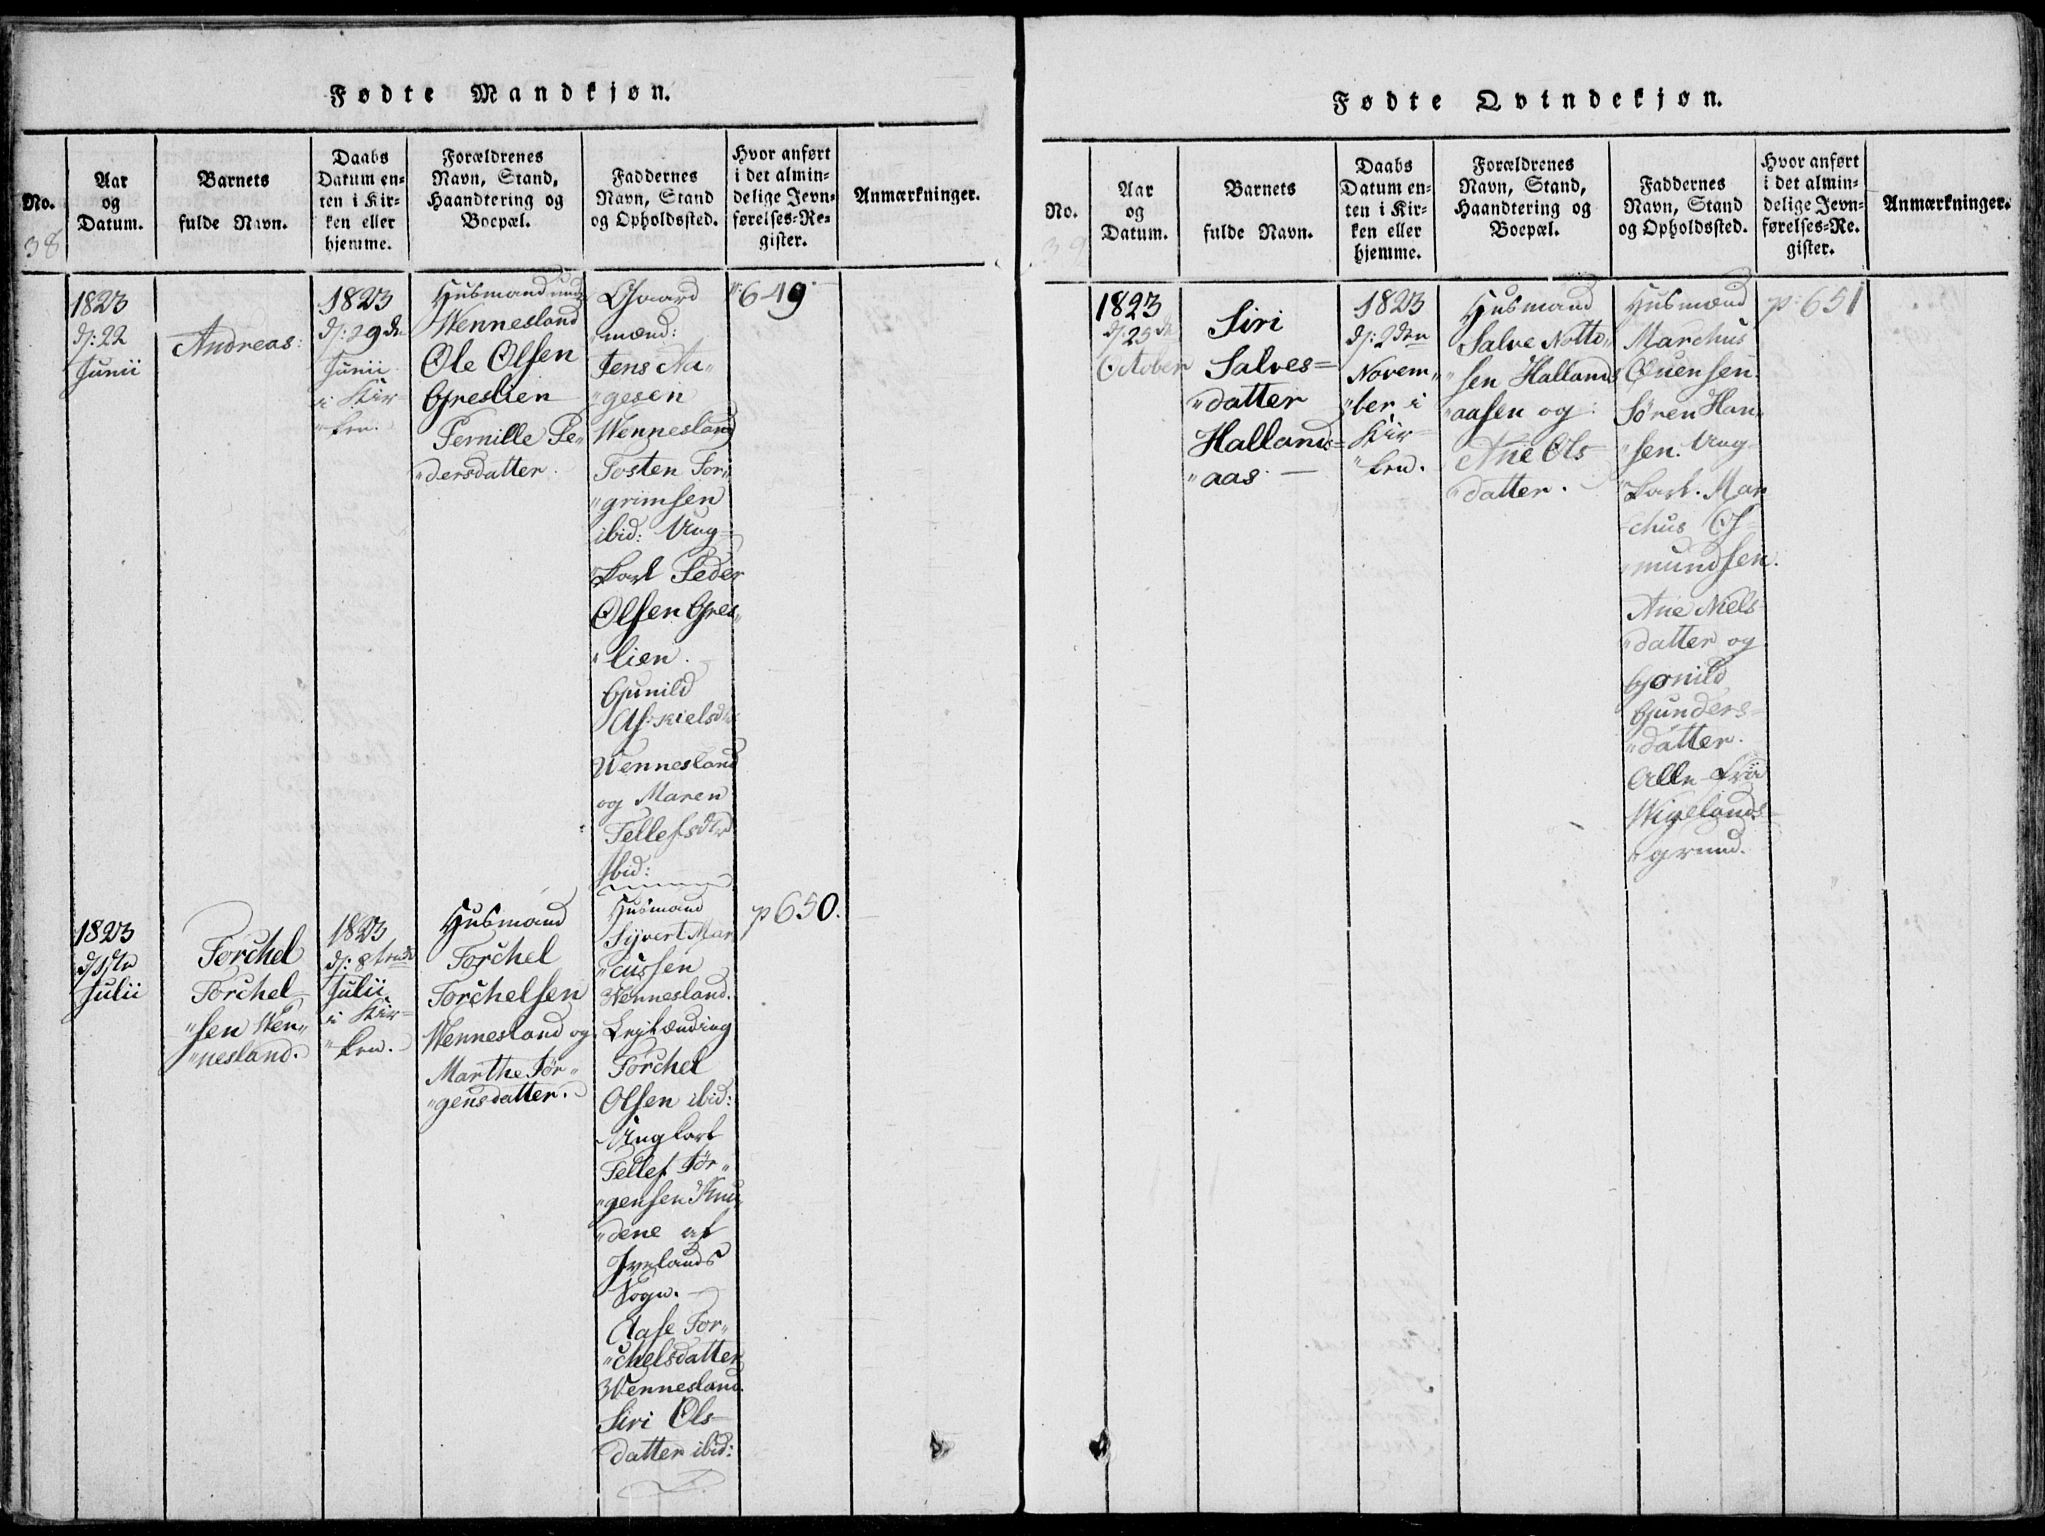 Fødte Mandkjøn.
No.
Aar
og
Datum.
Barnets
fulde Navn.
Daabs
Datum en-
ten i Kir-
ken eller
hjemme.
Forældrenes
Navn, Stand,
Haandtering og
Boepæl.
Faddernes
Navn, Stand
og Opholdssted.
Hvor anført
i det almin-
delige Jevn-
førelses-Re-
gister.
Anmærkninger.
38
1823
d: 22
Junii
Andreas:
1823
d: 29de
Junii
i Kir
"ken.
Husmand
Wennesland
Ole Olsen
Greslien
Pernille Pe-
"dersdatter.
Gaard
mænd:
Jens Aa-
"gesen
Wennesland
Tosten Tor-
"grimsen
ibid: Ung-
"karl Peder
Olsen Gres-
"lien.
Gunild
Askielsdtr
Wennesland
og Maren
Tellefsdtr
ibid:
p: 649
1823
d 1ste
Julii
Torchel
Torchel-
"sen Wen-
"nesland.
1823
d: 8tende
Julii
i Kir-
"ken.
Husmand
Torchel
Torchelsen
Wennesland og
Marthe Jør-
"gensdatter.
Husmand
Sijvert Mar
"cussen
Wennesland.
Lejlænding
Torchel
Olsen ibid:
Ungkarl
Tellef Jør-
"gensen Knu-
"dene af
Ivelands
Sogn.
Aase Tor-
"chelsdatter
Wennesland.
Siri Ols-
datter ibid:
p 650.
Fødte Qvindekjøn.
No.
Aar
og
Datum.
Barnets
fulde Navn.
Daabs
Datum en-
ten i Kir-
ken eller
hjemme.
Forældrenes
Navn, Stand,
Haandtering og
Boepæl.
Faddernes
Navn, Stand
og Opholdssted.
Hvor anført
i det almin-
delige Jevn-
førelses-Re-
gister.
Anmærkninger.
39
1823
d: 25de
October
Siri
Salves-
"datter
Hallands-
"aas.
1823
d: 2den
Novem-
"ber i
Kir-
"ken.
Husmand
Salve Notto-
"sen Hallands
"aasen og
Ane Ols-
"datter.
Husmænd
Marchus
Ouensen.
Søren Han
"sen. Ung-
"karl. Mar
-chus Os-
"mundsen.
Ane Niels
"datter og
Gonild
Gunders-
"datter.
Alle fra
Wigelands-
"grund.
p: 651